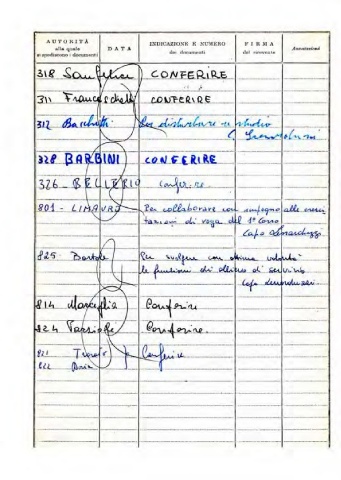 AUTORITÀ
alla quale
si spediscono i documenti
DATA
INDICAZIONE E NUMERO
dei documenti
FIRMA
del ricevente
Annotazioni
318 Sanfelice CONFERIRE
311 Franceschetti CONFERIRE
312 Bacchetti Per disturbare in studio
328 BARBINI CONFERIRE
326 - BELLERIO Conferire.
801 - LIMAURO Per collaborare con impegno alle
di voga del 1° Corso
Capo
825 - Bortole Per svolgere con ottima volontà
le funzioni di allievo di servizio
Capo
814 Marceglia Conferire
824 Conferire.
821 Conferire
822